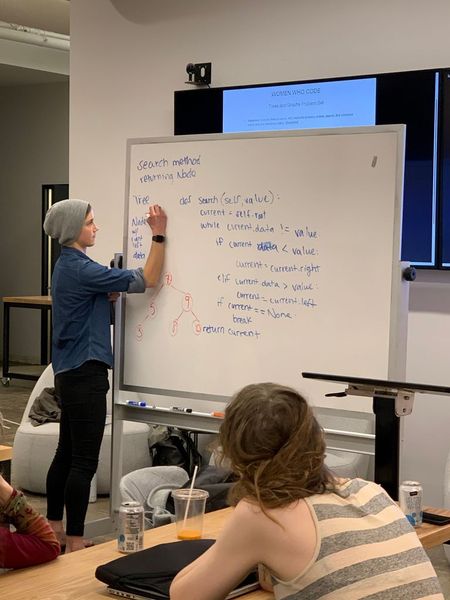 WOMEN WHO CODE
Trees and Graphs Problem Set
search method
returning Node
Tree
Node
w/
right
left
data
def search (self, value):
current = self.root
while current.data != value:
if current.data < value:
current = current.right
elif current.data > value:
current = current.left
if current == None:
break
return current
7
5
9
3
8